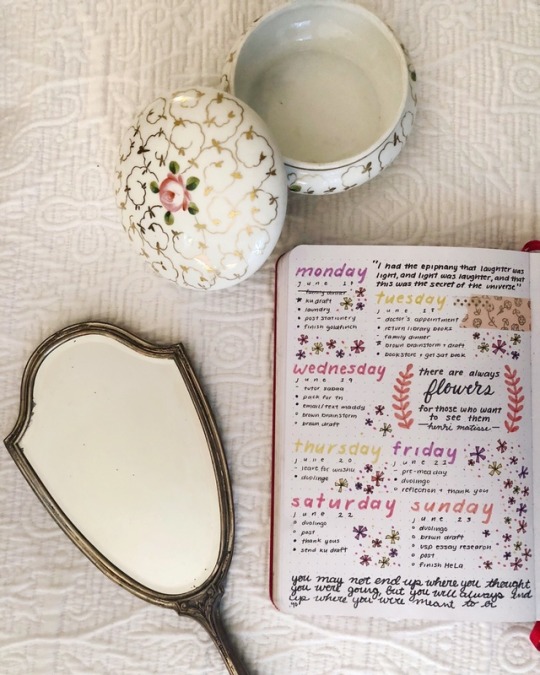 monday
june 17
family dinner
ku draft
laundry
post stationery
finish goldfinch
"I had the epiphany that laughter was
light, and light was laughter, and that
this was the secret of the universe"
tuesday
june 18
doctor's appointment
return library books
family dinner
brown brainstorm + draft
bookstore + get sat book
wednesday
june 19
tutor
pack for
email/text maddy
brown brainstorm
brown draft
there are always
flowers
for those who want
to see them
—henri matisse—
thursday
june 20
leave for
duolingo
friday
june 21
pre-med day
duolingo
reflection + thank you
saturday
june 22
duolingo
post
thank yous
send ku draft
sunday
june 23
duolingo
brown draft
usp essay research
post
finish HeLa
you may not end up where you thought
you were going, but you will always end
up where you were meant to be